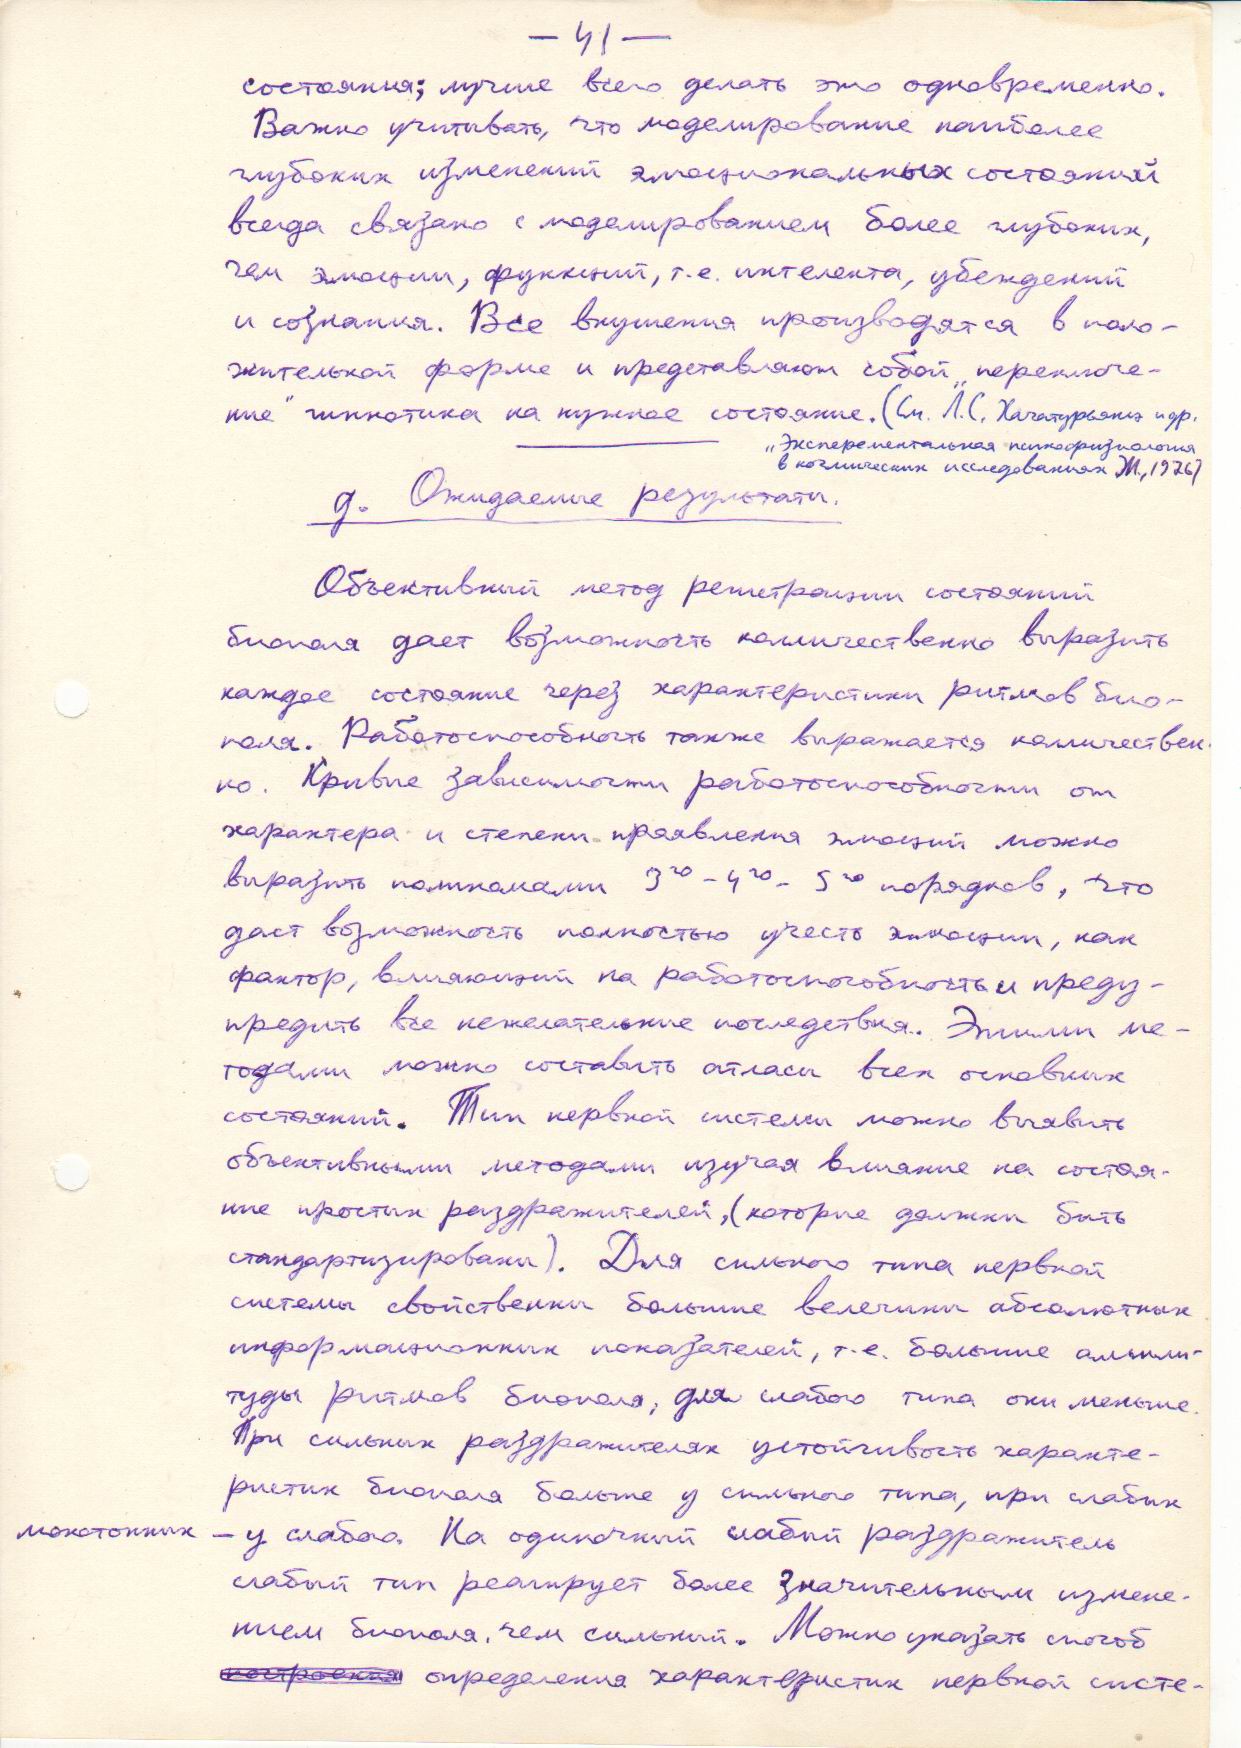 — 41 —
состояния; лучше всего делать это одновременно.
Важно учитывать, что моделирование наиболее
глубоких изменений эмоциональных состояний
всегда связано с моделированием более глубоких,
чем эмоции, функций, т.е. интелекта, убеждений
и сознания. Все внушения производятся в поло-
жительной форме и представляют собой „переключе-
ние" гипнотика на нужное состояние. (См. Л.С. Хачатурьянц и др.
„Эксперементальная психофизиология
в космических исследованиях М., 1976)
д. Ожидаемые результаты.
Объективный метод регистрации состояний
биополя дает возможность колличественно выразить
каждое состояние через характеристики ритмов био-
поля. Работоспособность также выражается колличествен-
но. Кривые зависимости работоспособности от
характера и степени проявления эмоций можно
выразить полиномами 3го - 4го - 5го порядков, что
даст возможность полностью учесть эмоции, как
фактор, влияющий на работоспособность и преду-
предить все нежелательные последствия. Этими ме-
тодами можно составить атласы всех основных
состояний. Тип нервной системы можно выявить
объективными методами изучая влияние на состоя-
ние простых раздражителей, (которые должны быть
стандартизированы). Для сильного типа нервной
системы свойственны большие велечины абсолютных
информационных показателей, т.е. большие ампли-
туды ритмов биополя, для слабого типа они меньше.
При сильных раздражителях устойчивость характе-
ристик биополя больше у сильного типа, при слабых
монотонных — у слабого. На одиночный слабый раздражитель
слабый тип реагирует более значительным измене-
нием биополя, чем сильный. Можно указать способ
построения определения характеристик нервной систе-